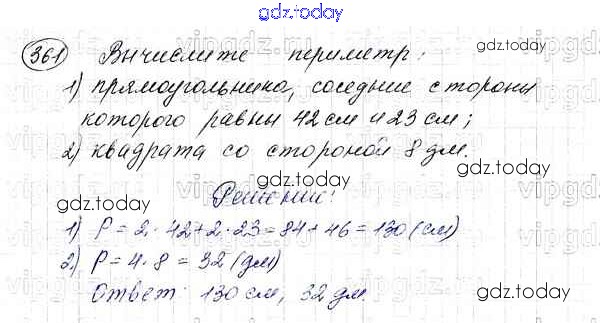 gdz.today
361 Вычислите периметр:
1) прямоугольника, соседние стороны
которого равны 42 см и 23 см;
2) квадрата со стороной 8 дм.
Решение:
1) P = 2 · 42 + 2 · 23 = 84 + 46 = 130 (см)
2) P = 4 · 8 = 32 (дм)
Ответ: 130 см, 32 дм.